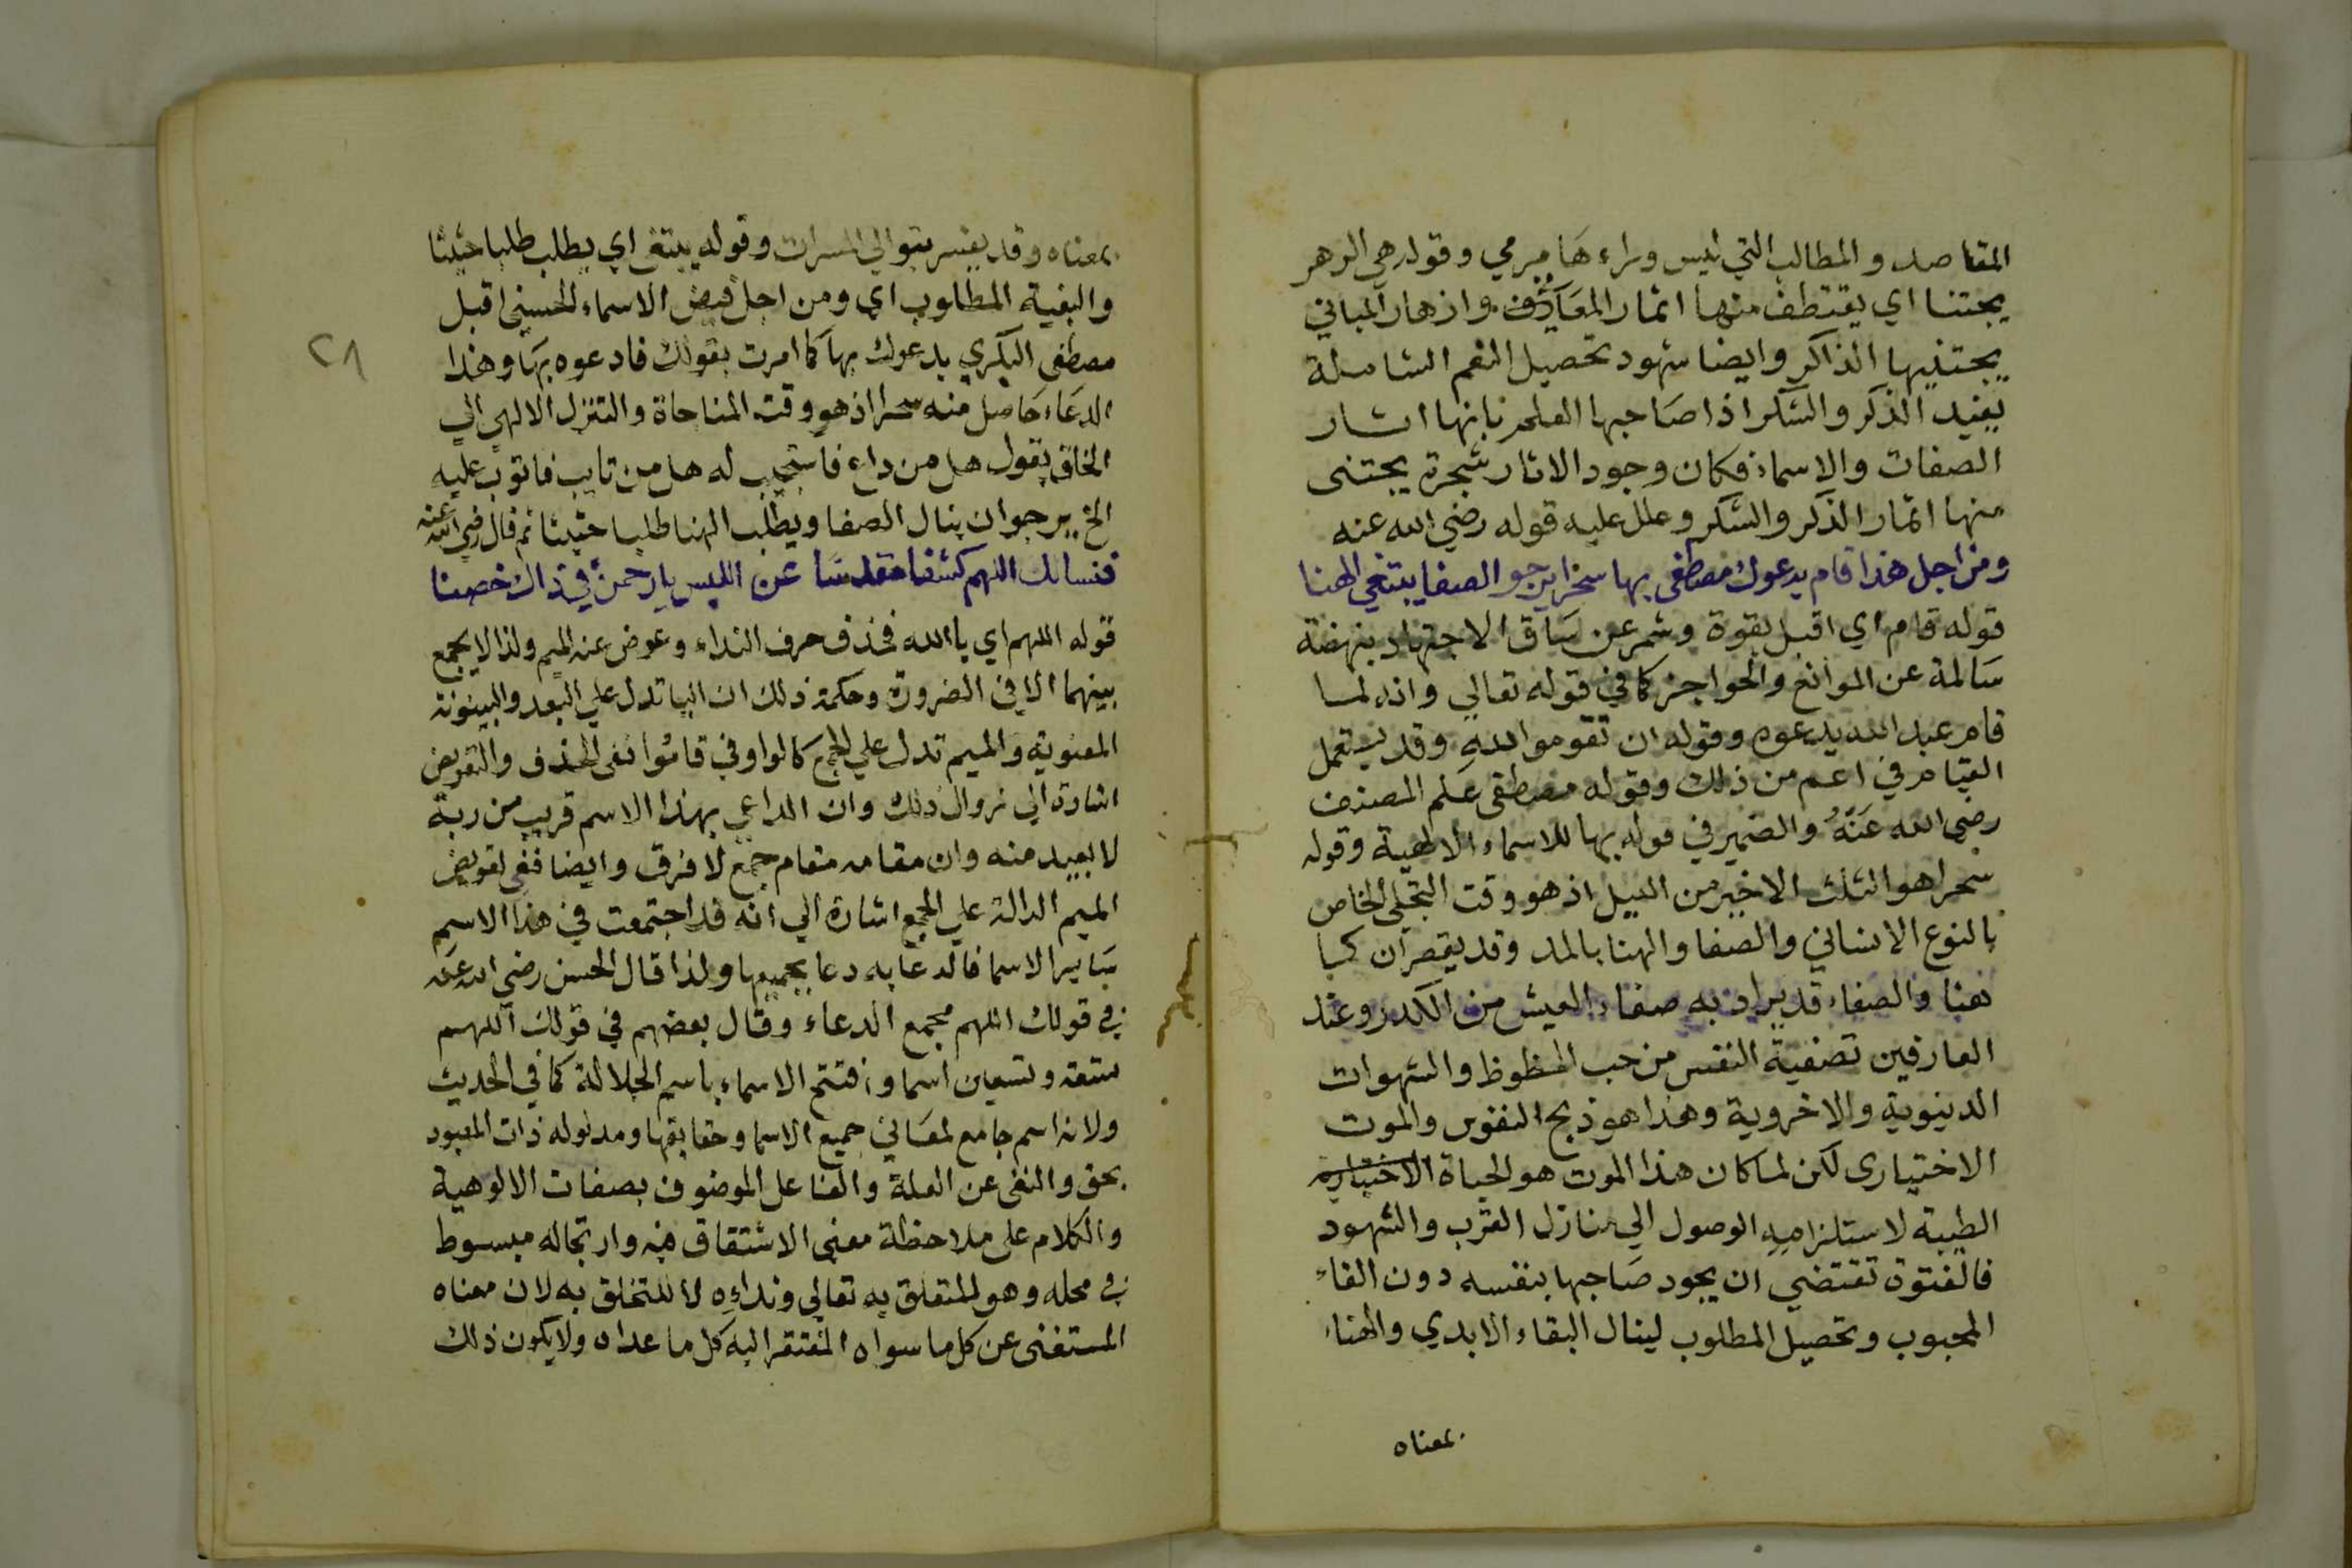 المقاصد والمطالب التي ليس وراءها مرمي وقوله هي الزهر
يجتنا اي يقتطف منها اثمار المعارف وازهار المباني
يجتنيها الذاكر وايضا شهود تحصيل النعم الشاملة
يفيد الذكر والشكر اذا صاحبها العلم بانها اثار
الصفات والاسماء فكان وجود الاثار شجرة يجتنى
منها اثمار الذكر والشكر وعلل عليه قوله رضي الله عنه
ومن اجل هذا قام يدعوك مصطفى بها سحرا يرجو الصفا يبتغي الهنا
قوله قام اي اقبل بقوة وشمر عن ساق الاجتهاد بنهضة
سالمة عن الموانع والحواجز كما في قوله تعالي وانه لما
قام عبد الله يدعوه وقوله ان تقوموا لله وقد يستعمل
القيام في اعم من ذلك وقوله مصطفى علم المصنف
رضي الله عنه والضمير في قوله بها للاسماء الالهية وقوله
سحرا هو الثلث الاخير من الليل اذ هو وقت التجلي الخاص
بالنوع الانساني والصفا والهنا بالمد وقد يقصران كما
هنا والصفاء قد يراد به صفاء العيش من الكدر وعند
العارفين تصفية النفس من حب الحظوظ والشهوات
الدنيوية والاخروية وهذا هو ذبح النفوس والموت
الاختيارى لكن لما كان هذا الموت هو الحياة الاختيارية
الطيبة لاستلزامه الوصول الي منازل القرب والشهود
فالفتوة تقتضي ان يجود صاحبها بنفسه دون القاء
المحبوب وتحصيل المطلوب لينال البقاء الابدي والهناء
بمعناه
٢٨
بمعناه وقد يفسر بتوالي المسرات وقوله يبتغ اي يطلب طلبا حثيثا
والبغية المطلوب اي ومن اجل فيض الاسماء الحسنى اقبل
مصطفى البكري يدعوك بها كما امرت بقولك فادعوه بها وهذا
الدعاء حاصل منه سحرا اذ هو وقت المناجاة والتنزل الالهي الي
الخلق يقول هل من داع فاستجيب له هل من تايب فاتوب عليه
الخ يرجو ان ينال الصفا ويطلب الهنا طلبا حثيثا ثم قال رضي الله عنه
فنسالك اللهم كشفا مقدسا عن اللبس يا رحمن في ذاك خصنا
قوله اللهم اي يا الله فحذف حرف النداء وعوض عنه الميم ولذا لا يجمع
بينهما الا في الضرورة وحكمة ذلك ان اليا تدل علي البعد والبينونة
المعنوية والميم تدل علي الجمع كالواو في قاموا ففي الحذف والتعويض
اشارة الي زوال ذلك وان الداعي بهذا الاسم قريب من ربه
لا بعيد منه وان مقامه مقام جمع لا فرق وايضا ففي تعويض
الميم الدالة علي الجمع اشارة الي انه قد اجتمعت في هذا الاسم
ساير الاسما فالدعا به دعا بجميعها ولذا قال الحسن رضي الله عنه
في قولك اللهم مجمع الدعاء وقال بعضهم في قولك اللهم
تسعة وتسعين اسما وافتتح الاسماء باسم الجلالة كما في الحديث
ولانه اسم جامع لمعاني جميع الاسما وحقايقها ومدلوله ذات المعبود
بحق والغنى عن العلة والفاعل الموصوف بصفات الالوهية
والكلام على ملاحظة معنى الاشتقاق فيه وارتجاله مبسوط
في محله وهو للتعلق به تعالي وندائه لا للتخلق به لان معناه
المستغنى عن كل ما سواه المفتقر اليه كل ما عداه ولا يكون ذلك